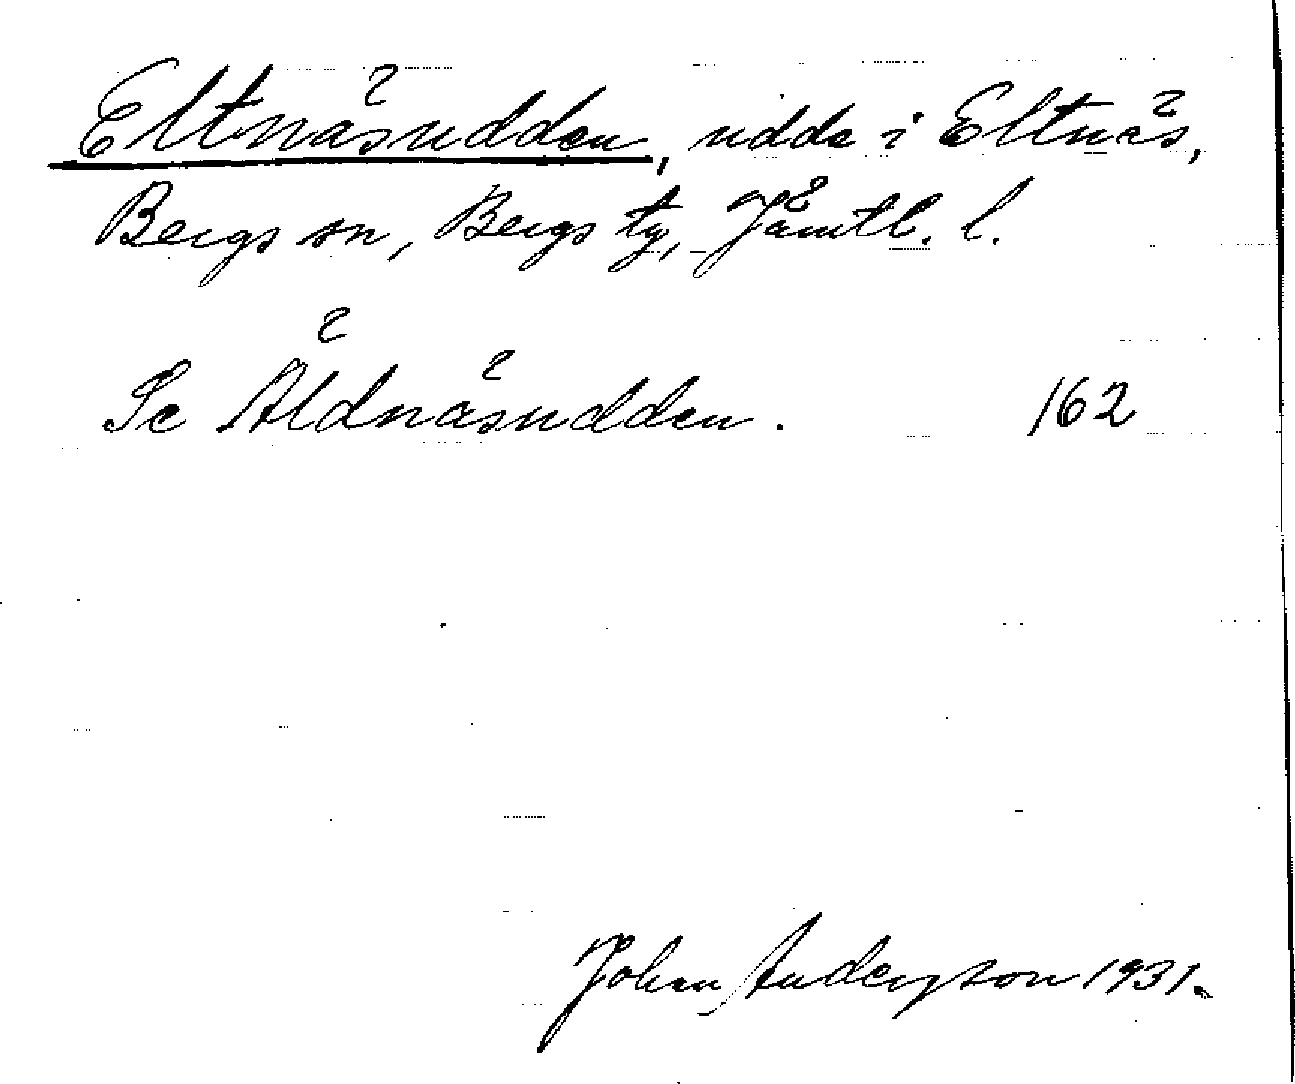 Eltnäsudden, udde i Eltnäs,
Bergs sn, Bergs tg, Jämtl. l.
Se Äldnäsudden. 162
Johan Anderzson 1931.